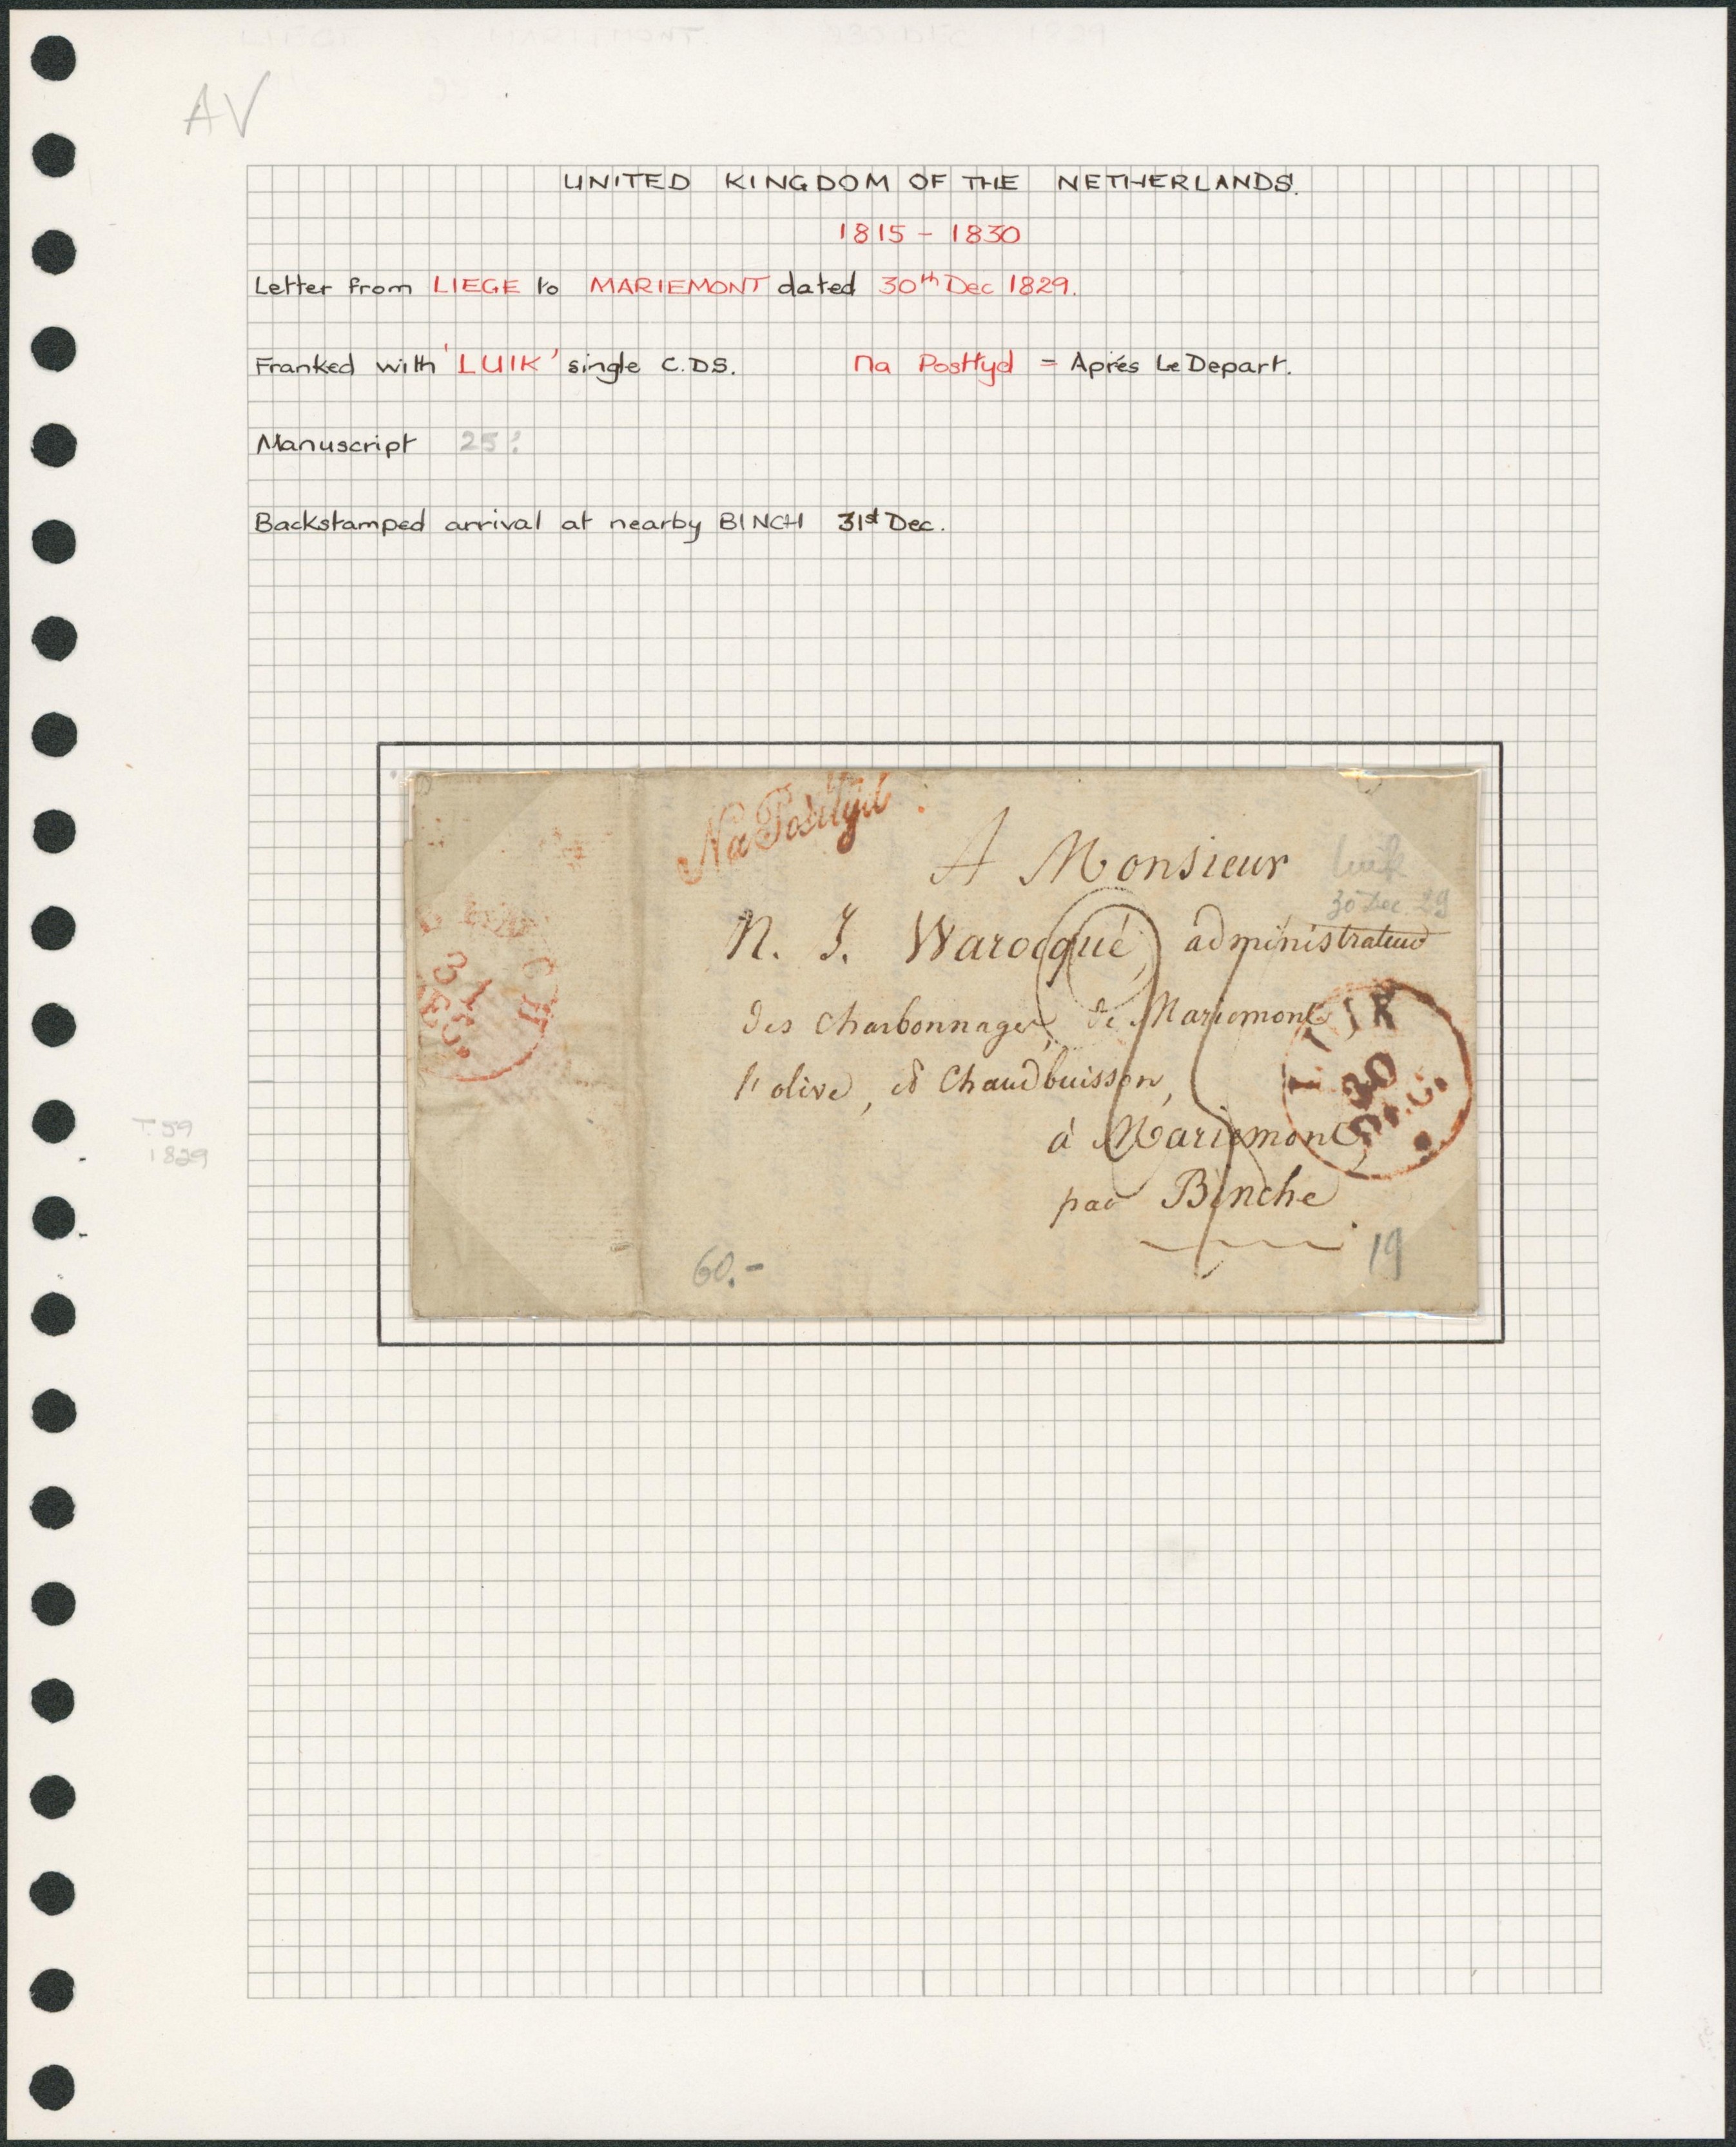 AV
UNITED KINGDOM OF THE NETHERLANDS.
1815 - 1830
Letter from LIEGE to MARIEMONT dated 30th Dec 1829.
Franked with 'LUIK' single C.DS. Na Posttyd = Aprés Le Depart.
Manuscript 25
Backstamped arrival at nearby BINCH 31st Dec.
Na Posttyd
A Monsieur
Luik
30 Dec. 29
N. J. Warocqué, administrateur
des Charbonnages de Mariemont,
l'olive, et Chaudbuisson,
à Mariemont
par Binche
LUIK
30
DEC.
CH
31
DEC.
60.-
19
T.59
1829